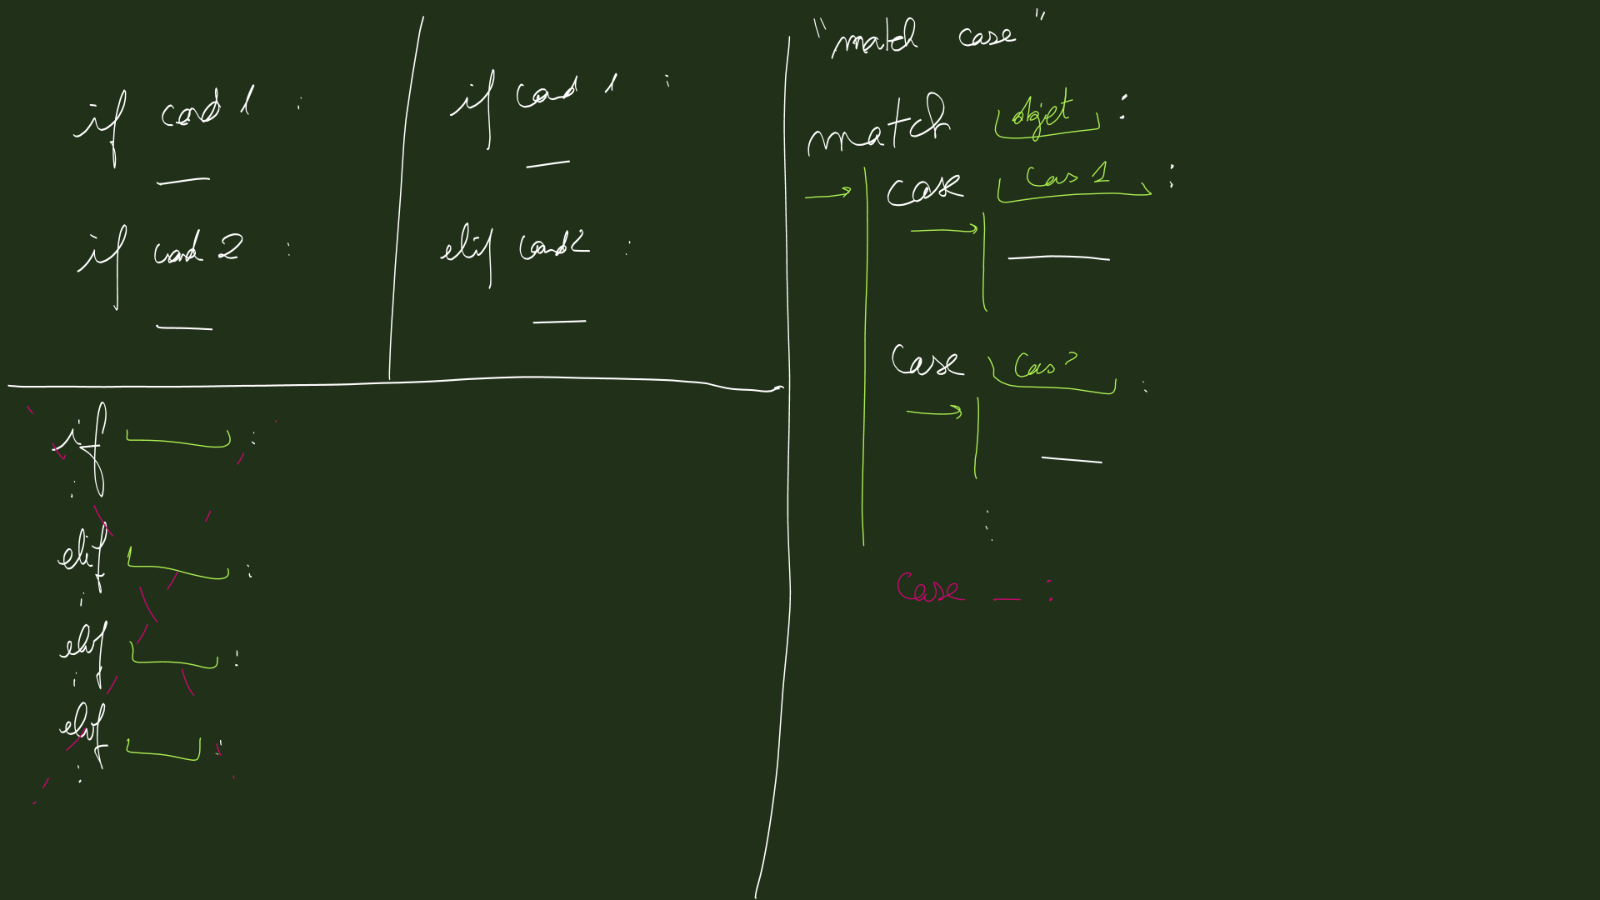 if cond 1 :
if cond 2 :
if cond 1 :
elif cond 2 :
if :
elif :
elif :
elif :
"match case"
match objet :
case Cas 1 :
case Cas 2 :
case _ :